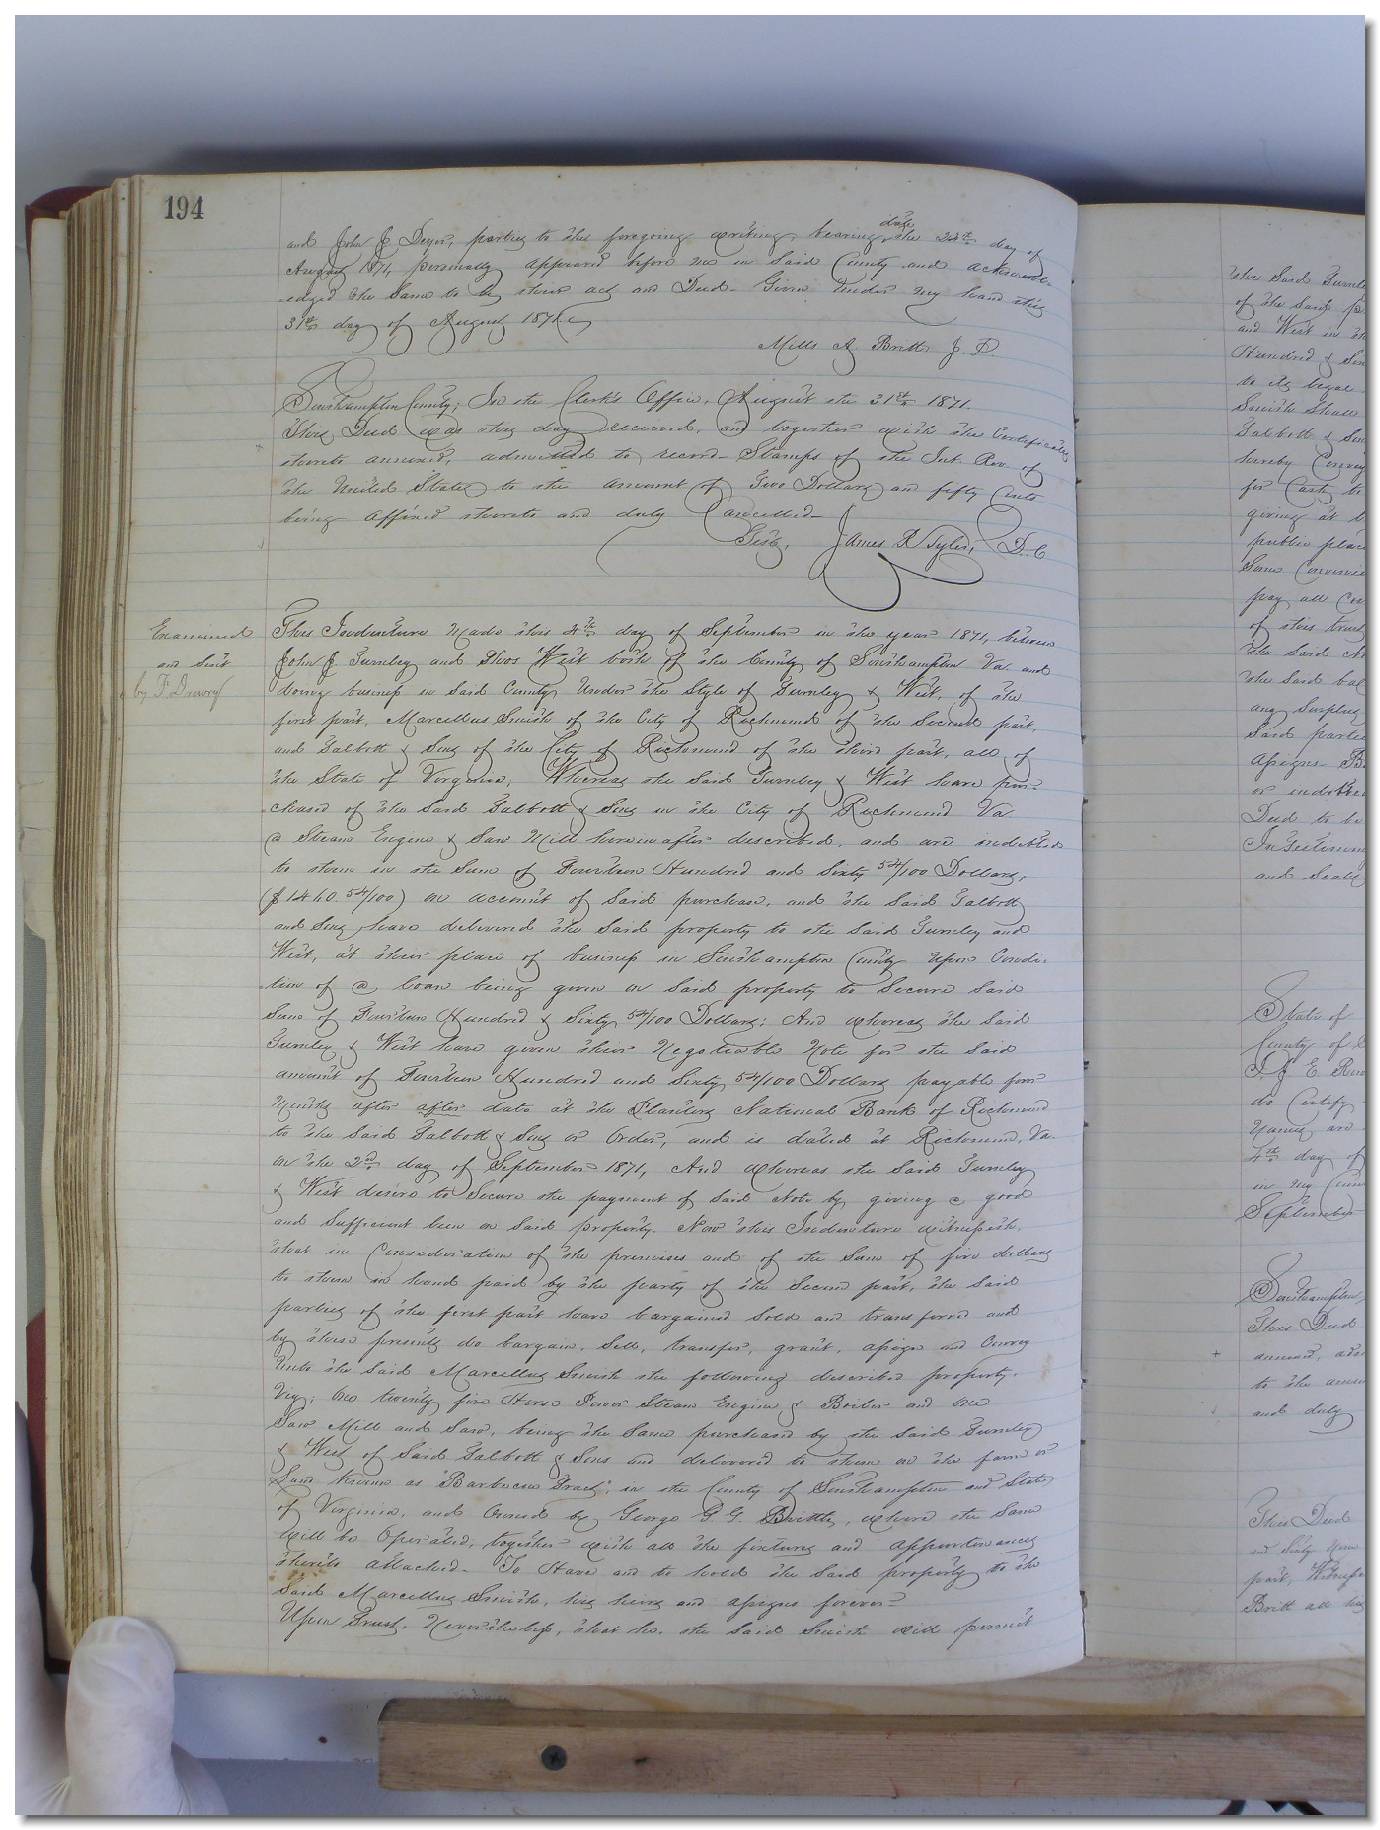 194
and John J Deyer, parties to the foregoing writing, bearing date the 24th day of
August 1871, personally appeared before me in said County and acknowl-
-edged the Same to be their act and Deed. Given under my hand this
31st day of August 1871
Mills A Britt J. P.
Southampton County; In the Clerk's Office, August the 31st 1871.
This Deed was this day received, and together with the Certificate
thereto annexed, admitted to record. Stamps of the Int. Rev. of
the United States to the amount of Two Dollars and fifty Cents
being affixed thereto and duly Cancelled.
Teste, James R Tyler, D. C
Examined
and sent
by F. Drewry
This Indenture Made this 4th day of September in the year 1871, between
John J Turnley and Thos West both of the County of Southampton Va. and
doing business in said County Under the Style of Turnley & West, of the
first part, Marcellus Smith of the City of Richmond of the Second part,
and Talbott & Sons of the City of Richmond of the third part, all of
the State of Virginia, Whereas the said Turnley & West have pur-
-chased of the said Talbott & Sons in the City of Richmond Va
a Steam Engine & Saw Mill hereinafter described, and are indebted
to them in the Sum of Fourteen Hundred and Sixty 54/100 Dollars,
($1460.54/100) on account of said purchase, and the said Talbott
and Sons have delivered the said property to the said Turnley and
West, at their place of business in Southampton County Upon Condi-
-tion of a loan being given on said property to Secure said
Sum of Fourteen Hundred & Sixty 54/100 Dollars; And whereas the said
Turnley & West have given their Negotiable Note for the said
amount of Fourteen Hundred and Sixty 54/100 Dollars payable four
Months after after date at the Planters National Bank of Richmond
to the said Talbott & Sons or Order, and is dated at Richmond, Va.
on the 2nd day of September 1871, And whereas the said Turnley
& West desire to Secure the payment of said Note by giving a good
and Sufficient lien on said property. Now this Indenture witnesseth,
that in Consideration of the premises and of the Sum of five dollars
to them in hand paid by the party of the Second part, the said
parties of the first part have bargained Sold and transfered and
by these presents do bargain, Sell, transfer, grant, assign and Convey
Unto the said Marcellus Smith the following described property.
Viz; One twenty five Horse Power Steam Engine & Boiler and One
Saw Mill and Saw, being the Same purchased by the said Turnley
& West of said Talbott & Sons and delivered to them on the farm or
Land known as "Barbecue Tract", in the County of Southampton and State
of Virginia, and Owned by George G. G. Brittle, where the Same
will be Operated, together with all the fixtures and appurtenances
thereto attached. To Have and to hold the said property to the
said Marcellus Smith, his heirs and assigns forever
Upon Trust, Nevertheless, that he, the said Smith will permit
the said Turnle
of the said p
and West in th
Hundred & Six
to its legal
Smith Shall
Talbott & Son
hereby Convey
for Cash to
giving at l
public place
Same Convenie
pay all Co
of this trust
the said
the said bal
any Surplus
said partie
assigns
or indebted
Deed to be
In Testimony
and Seals
State of
County of
I. J. E.
do Certify
names are
4th day of
in my Coun
September
Southampton
This Deed
annexed, adm
to the amou
and duly
This Deed
and Sixty
part, Witness
Britt all his